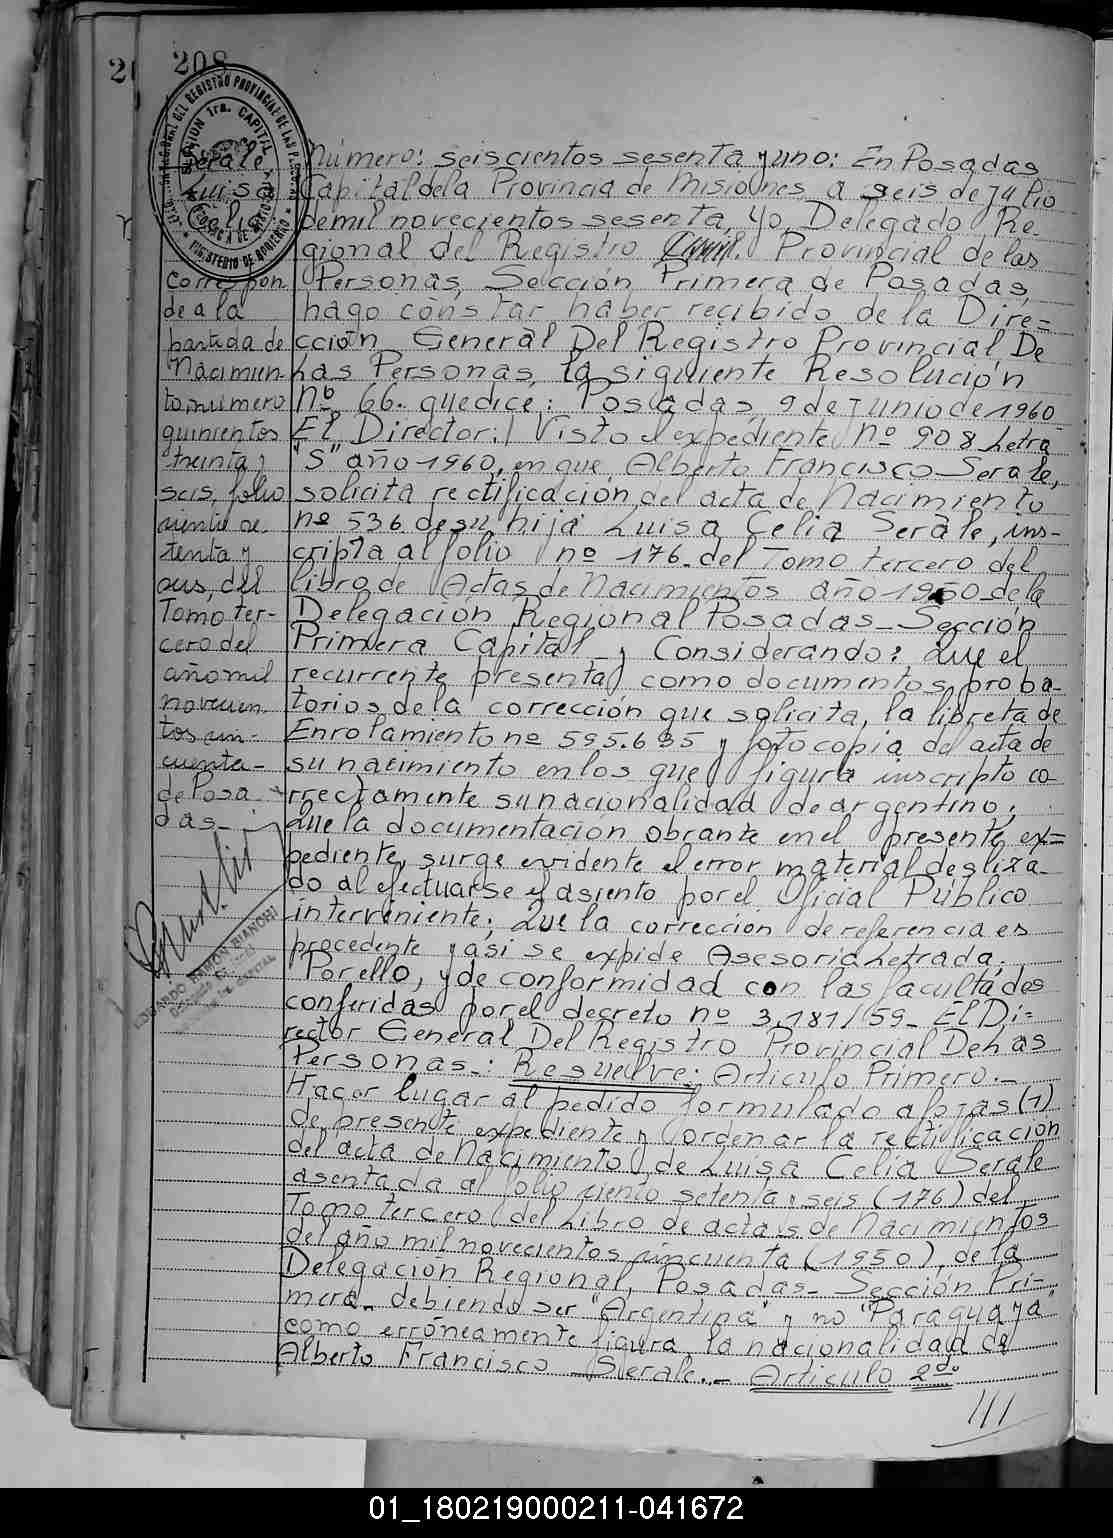 208
Serale
Luisa
Celia
Correspon
de a la
partida de
Nacimien-
to número
quinientos
treinta y
seis, folio
ciento se
tenta y
seis, del
Tomo ter-
cero del
año mil
novecien
tos cin-
cuenta-
de Posa
das-
EDUARDO RAMON BIANCHI
Número: seiscientos sesenta y uno: En Posadas
Capital de la Provincia de Misiones, a seis de Julio
de mil novecientos sesenta, yo, Delegado Re-
gional del Registro Civil. Provincial de las
Personas, Sección Primera de Posadas,
hago constar haber recibido de la Dire=
cción General Del Registro Provincial De
Las Personas, la siguiente Resolución
Nº 66. que dice: Posadas, 9 de Junio de 1960
El Director: Visto el expediente Nº 908 Letra
"S" año 1960, en que Alberto Francisco Serale,
solicita rectificación del acta de Nacimiento
nº 536 de su hija Luisa Celia Serale, ins-
cripta al folio nº 176. del Tomo tercero del
libro de Actas de Nacimientos año 1950 de la
Delegación Regional Posadas- Sección
Primera Capital y Considerando: Que el
recurrente presenta, como documentos proba-
torios de la corrección que solicita, la libreta de
Enrolamiento nº 595.635 y fotocopia del acta de
su nacimiento en los que figura inscripto co-
rrectamente su nacionalidad de argentino;
Que la documentación obrante en el presente ex=
pediente, surge evidente el error material desliza-
do al efectuarse el asiento por el Oficial Público
interviniente; Que la corrección de referencia es
procedente y así se expide Asesoria Letrada;
Por ello, y de conformidad con las facultades
conferidas por el decreto nº 3.181/59- El Di=
rector General Del Registro Provincial De Las
Personas-: Resuelve: Artículo Primero.-
Hacer lugar al pedido formulado a fojas (1)
de presente expediente y ordenar la rectificación
del acta de Nacimiento de Luisa Celia Serale
asentada al folio ciento setenta y seis (176) del
Tomo tercero del Libro de actas de Nacimientos
del año mil novecientos cincuenta (1950), de la
Delegación Regional, Posadas- Sección Pri-
mera- debiendo ser "Argentina" y no "Paraguaya"
como erróneamente figura, la nacionalidad de
Alberto Francisco Serale.- Artículo 2do
///
01_180219000211-041672